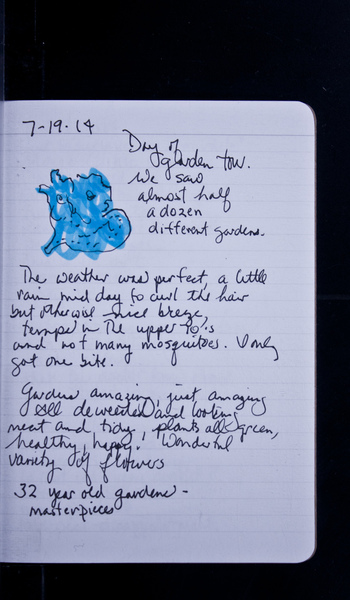 7-19-14
Day of
garden tour.
We saw
almost half
a dozen
different gardens.
The weather was perfect, a little
rain mid day to curl the hair
but otherwise nice breeze,
temps in the upper 70's
and not many mosquitoes. I only
got one bite.
Gardens amazing, just amazing
all deweeded and looking
neat and tidy, plants all green,
healthy, happy. Wonderful
variety of flowers
32 year old gardens -
masterpieces